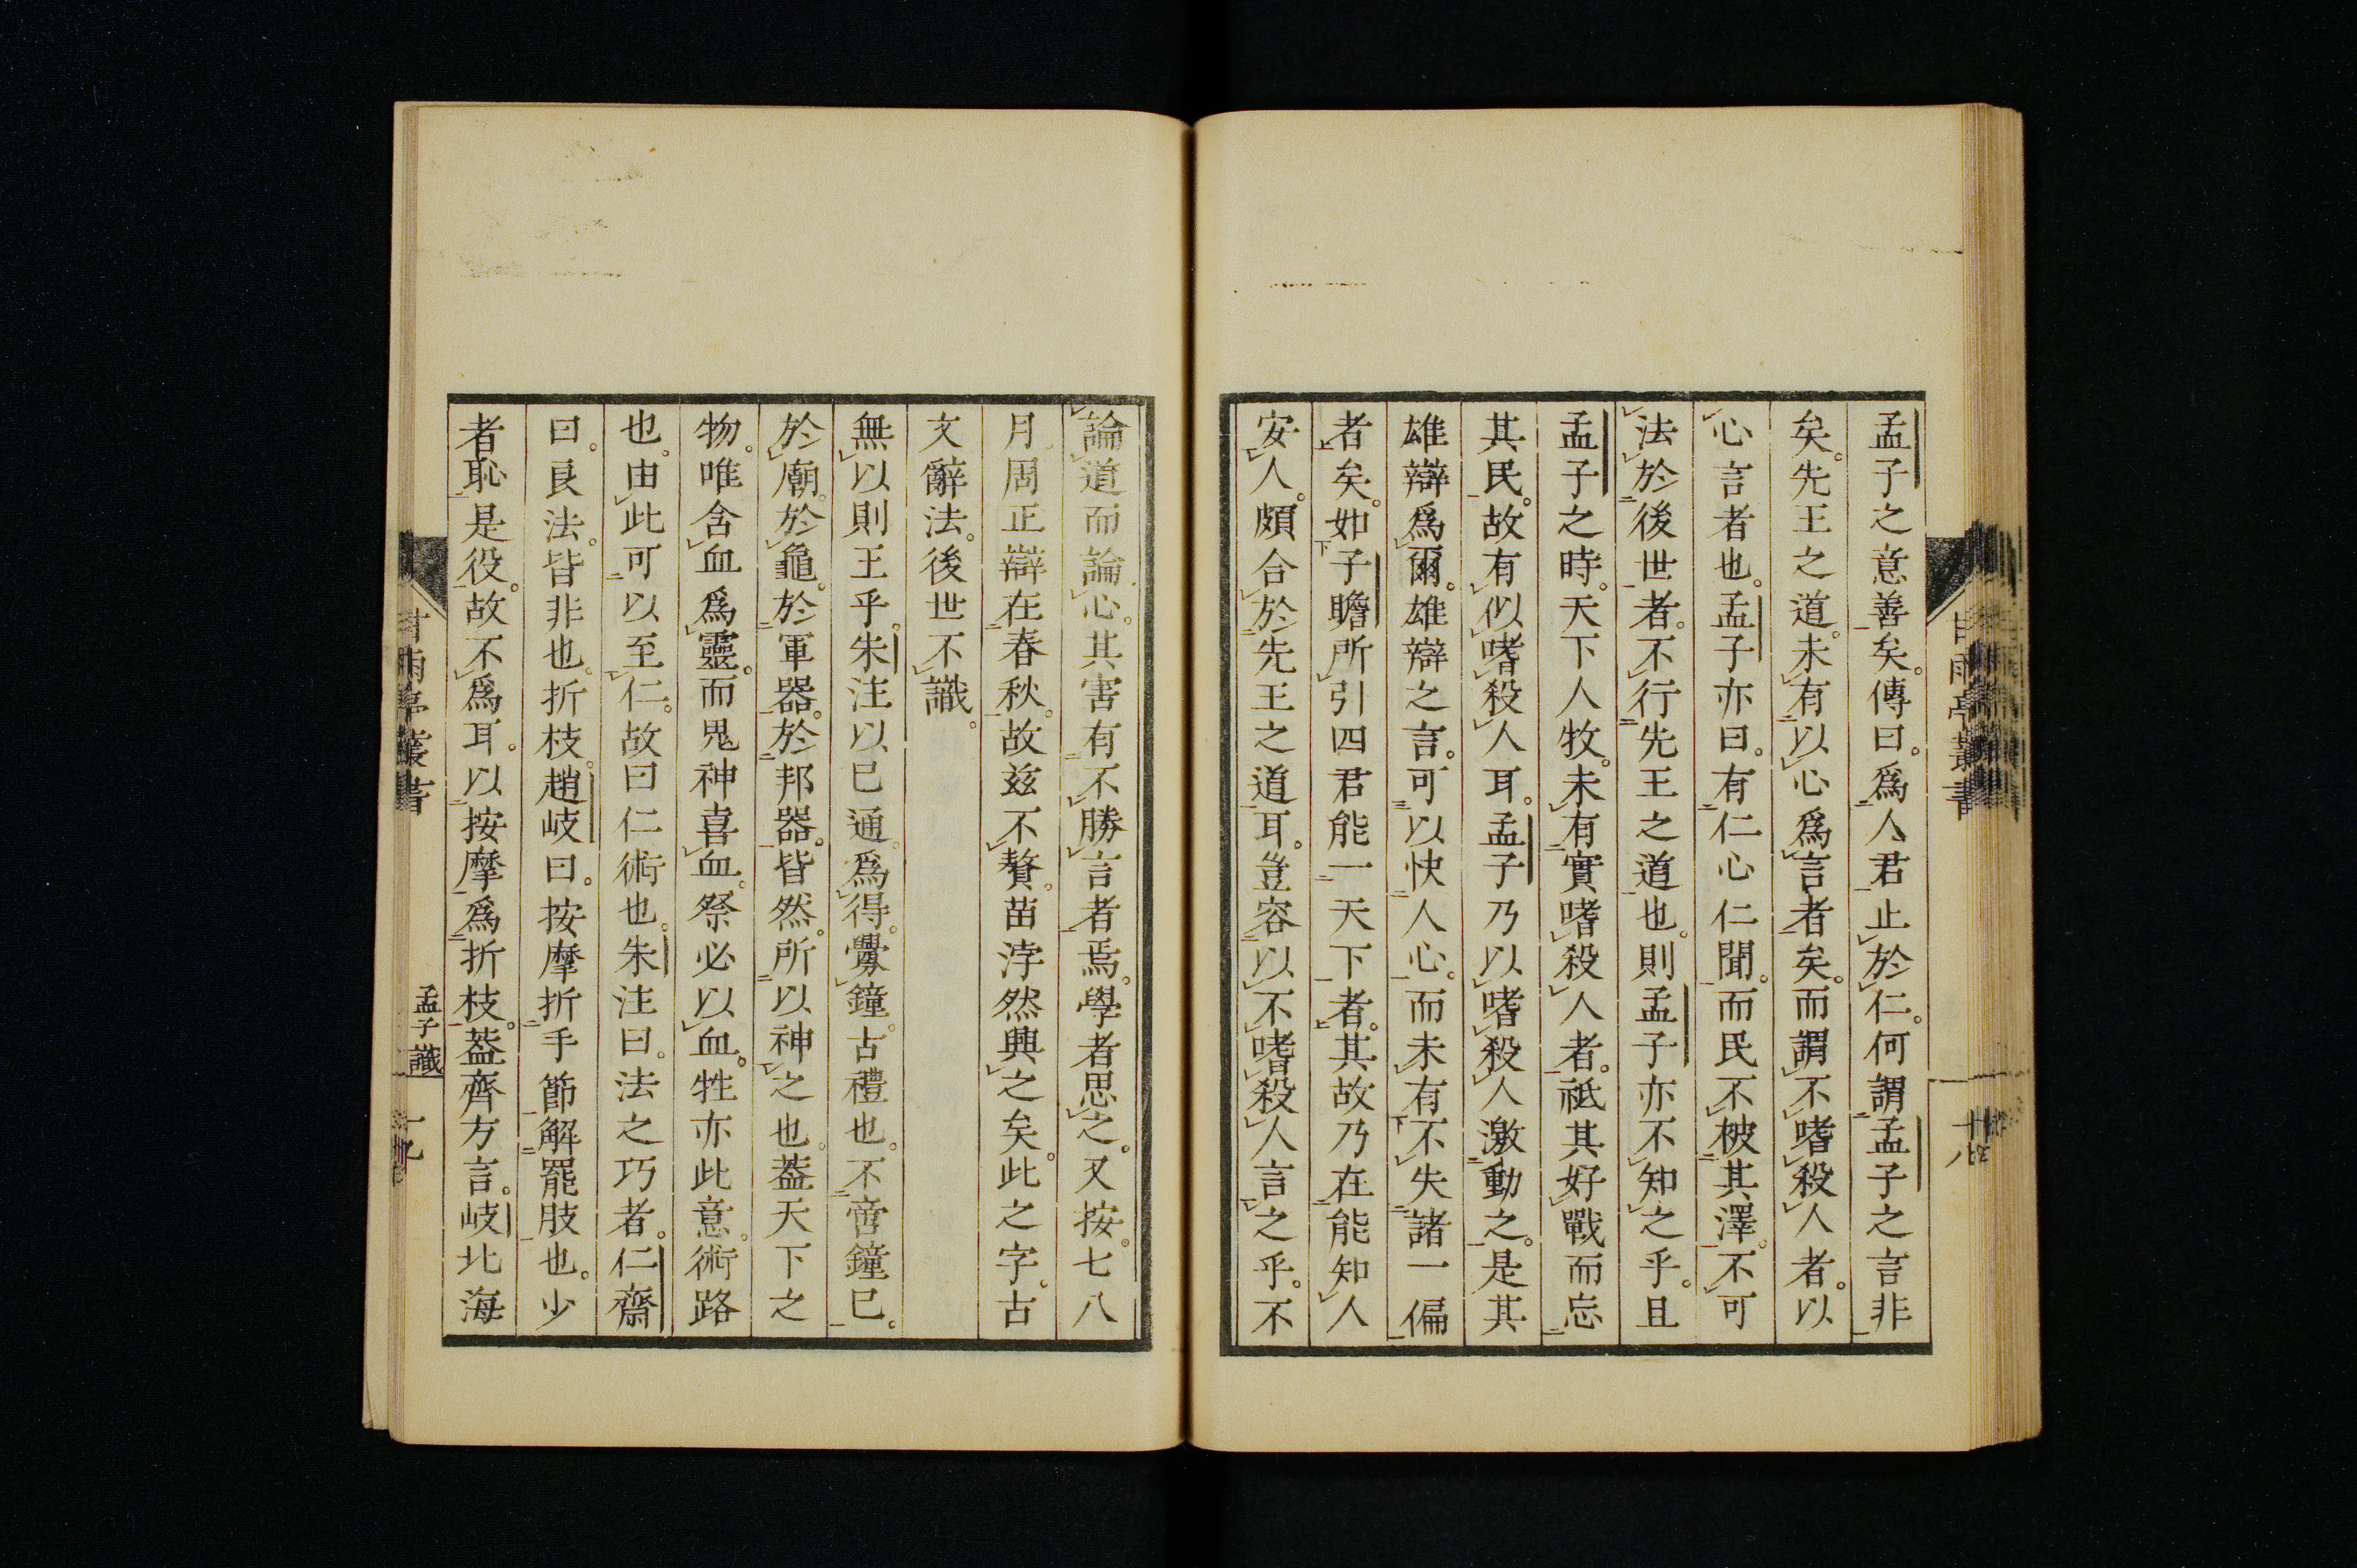 孟子之意善矣。傳曰。爲人君止於仁。何謂孟子之言非
矣。先王之道。未有以心爲言者矣。而謂不嗜殺人者。以
心言者也。孟子亦曰。有仁心仁聞。而民不被其澤。不可
法於後世者。不行先王之道也。則孟子亦不知之乎。且
孟子之時。天下人牧。未有實嗜殺人者。祗其好戰而忘
其民。故有似嗜殺人耳。孟子乃以嗜殺人激動之。是其
雄辯爲爾。雄辯之言。可以快人心。而未有不失諸一偏
者矣。如子瞻所引四君能一天下者。其故乃在能知人
安人。頗合於先王之道耳。豈容以不嗜殺人言之乎。不
甘雨亭叢書
十八
論道而論心。其害有不勝言者焉。學者思之。又按。七八
月周正辯在春秋。故茲不贅。苗浡然興之矣。此之字。古
文辭法。後世不識。
無以則王乎。朱注以已通。爲得。釁鐘。古禮也。不啻鐘已。
於廟。於龜。於軍器。於邦器。皆然。所以神之也。葢天下之
物。唯含血爲靈。而鬼神喜血。祭必以血。牲亦此意。術路
也。由此可以至仁。故曰仁術也。朱注曰。法之巧者。仁齋
曰。良法。皆非也。折枝。趙岐曰。按摩折手節解罷肢也。少
者恥是役。故不爲耳。以按摩爲折枝。葢齊方言。岐北海
甘雨亭叢書
孟子識
十九